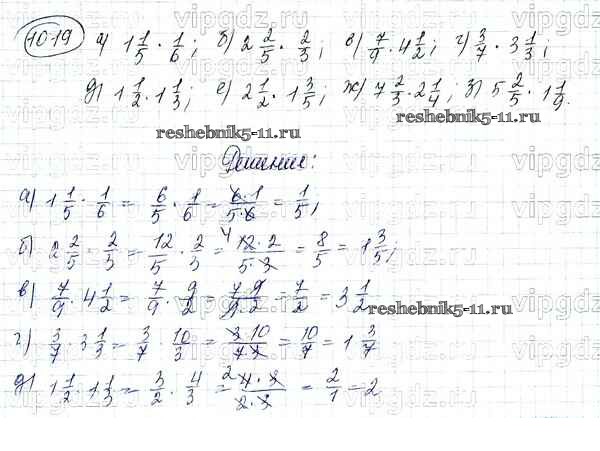 10.19 а) 1 1/5 · 1/6; б) 2 2/5 · 2/3; в) 7/9 · 4 1/2; г) 3/7 · 3 1/3;
д) 1 1/2 · 1 1/3; е) 2 1/2 · 1 3/5; ж) 7 2/3 · 2 1/4; з) 5 2/5 · 1 1/9.
reshebnik5-11.ru
reshebnik5-11.ru
Решение:
а) 1 1/5 · 1/6 = 6/5 · 1/6 = 6·1/5·6 = 1/5;
б) 2 2/5 · 2/3 = 12/5 · 2/3 = 4 12·2/5·3 = 8/5 = 1 3/5;
в) 7/9 · 4 1/2 = 7/9 · 9/2 = 7·9/9·2 = 7/2 = 3 1/2
reshebnik5-11.ru
г) 3/7 · 3 1/3 = 3/7 · 10/3 = 3·10/7·3 = 10/7 = 1 3/7
д) 1 1/2 · 1 1/3 = 3/2 · 4/3 = 2 4·3/2·3 = 2/1 = 2